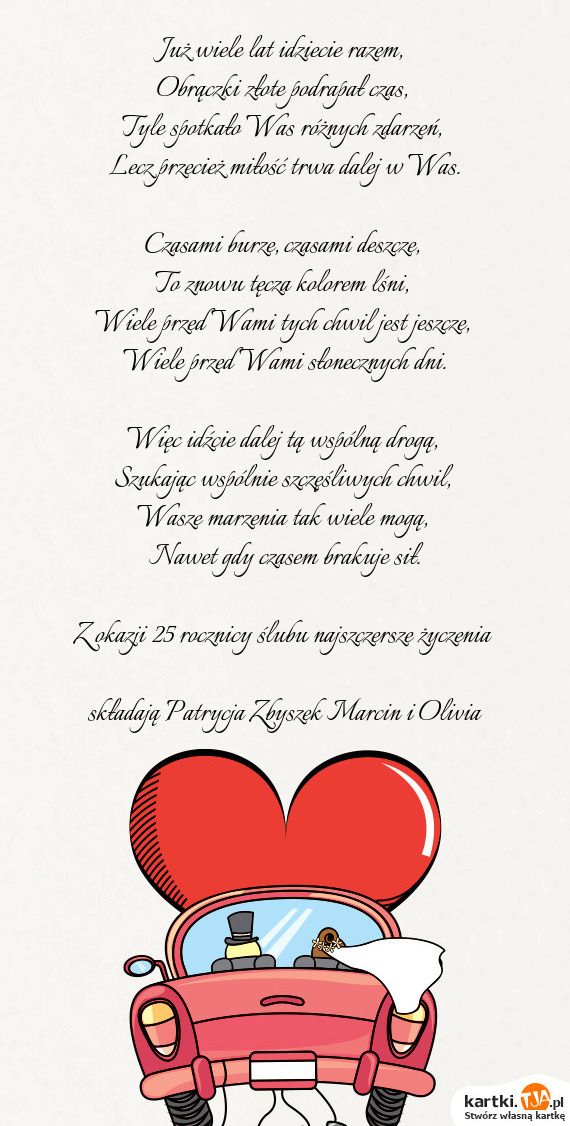 Już wiele lat idziecie razem,
Obrączki złote podrapał czas,
Tyle spotkało Was różnych zdarzeń,
Lecz przecież miłość trwa dalej w Was.
Czasami burze, czasami deszcze,
To znowu tęcza kolorem lśni,
Wiele przed Wami tych chwil jest jeszcze,
Wiele przed Wami słonecznych dni.
Więc idźcie dalej tą wspólną drogą,
Szukając wspólnie szczęśliwych chwil,
Wasze marzenia tak wiele mogą,
Nawet gdy czasem brakuje sił.
Z okazji 25 rocznicy ślubu najszczersze życzenia
składają Patrycja Zbyszek Marcin i Olivia
kartki.TJA.pl
Stwórz własną kartkę